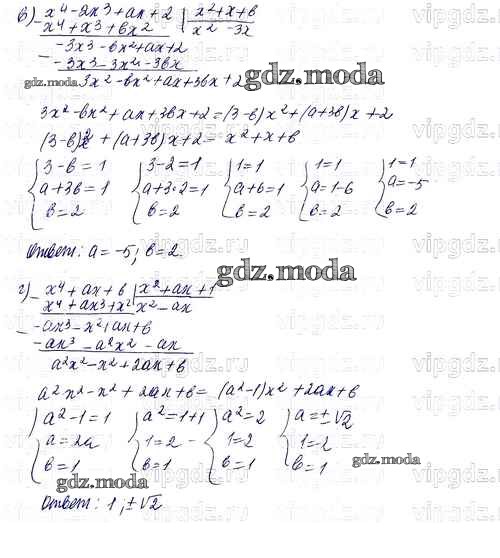 в) x⁴-2x³+ax+2 | x²+x+b
x⁴+x³+bx² | x²-3x
-3x³-bx²+ax+2
-3x³-3x²-3bx
3x²-bx²+ax+3bx+2
3x²-bx²+ax+3bx+2=(3-b)x²+(a+3b)x+2
(3-b)x²+(a+3b)x+2=x²+x+b
{3-b=1 {3-2=1 {1=1 {1=1 {1=1
{a+3b=1 {a+3·2=1 {a+6=1 {a=1-6 {a=-5
{b=2 {b=2 {b=2 {b=2 {b=2
Ответ: a=-5; b=2.
gdz.moda
г) x⁴+ax+b | x²+ax+1
x⁴+ax³+x² | x²-ax
-ax³-x²+ax+b
-ax³-a²x²-ax
a²x²-x²+2ax+b
a²x²-x²+2ax+b=(a²-1)x²+2ax+b
{a²-1=1 {a²=1+1 {a²=2 {a=±√2
{a=2a {1=2 - {1=2 {1=2
{b=1 {b=1 {b=1 {b=1
gdz.moda
gdz.moda
Ответ: 1; ±√2
vipgdz.ru